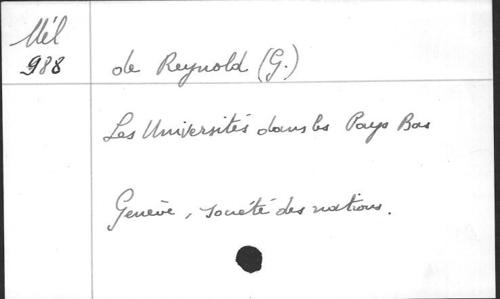 Mél
988
de Reynold (G.)
Les Universités dans les Pays Bas
Genève, société des nations.